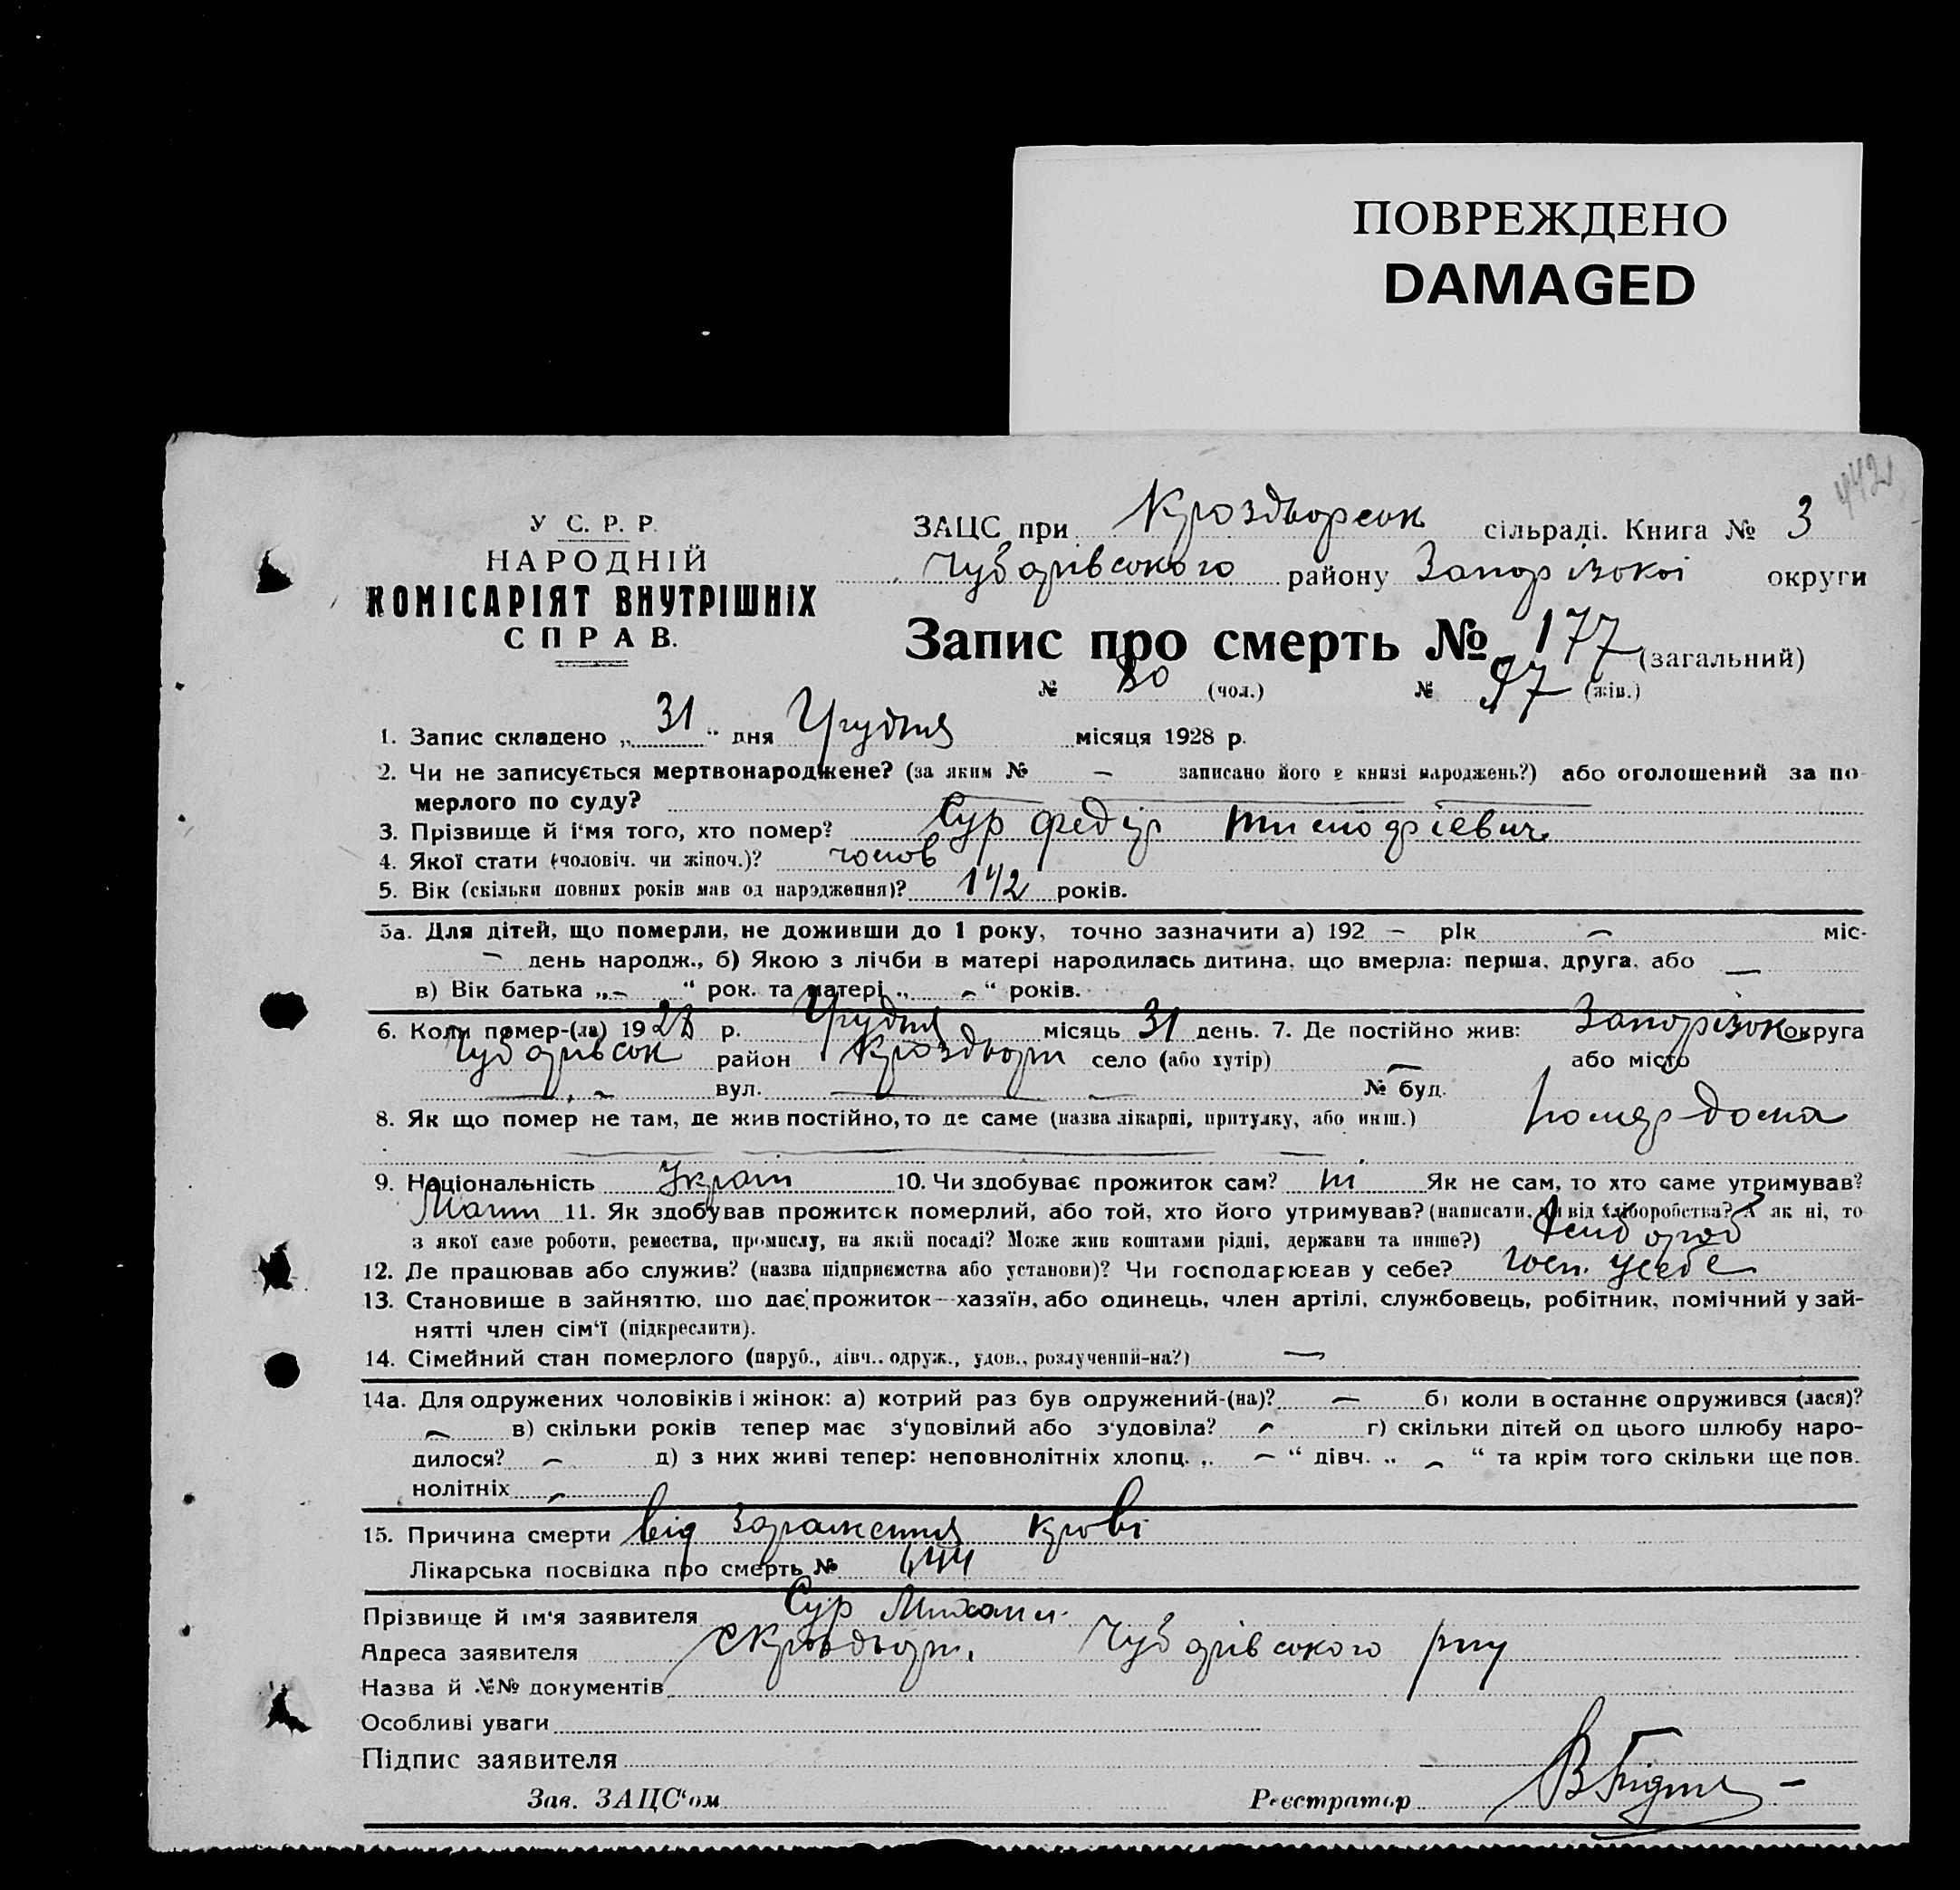 ПОВРЕЖДЕНО
DAMAGED
442
У С. Р. Р.
НАРОДНІЙ
КОМІСАРІЯТ ВНУТРІШНІХ
СПРАВ.
ЗАЦС при Кроздворсок сільраді. Книга № 3
Чубарівського району Запорізокої округи
Запис про смерть № 177 (загальний)
№ 80 (чол.) № 97 (жін.)
1. Запис складено „31“ дня Грудня місяця 1928 р.
2. Чи не записується мертвонароджене? (за яким № — записано його в книзі народжень?) або оголошений за по-
мерлого по суду?
3. Прізвище й і'мя того, хто помер? Сур Федір
4. Якої стати (чоловіч. чи жіноч.)? чолов
5. Вік (скільки повних років мав од народження)? 1 1/2 років.
5а. Для дітей, що померли, не доживши до 1 року, точно зазначити а) 192 — рік — міс-
— день народж., б) Якою з лічби в матері народилась дитина, що вмерла: перша, друга, або —
в) Вік батька „—“ рок. та матері „—“ років.
6. Коли помер-(ла) 1928 р. Грудня місяць 31 день. 7. Де постійно жив: Запорізок округа
Чубарівсок район Кроздворт село (або хутір) — або місто
— вул. — № буд.
8. Як що помер не там, де жив постійно, то де саме (назва лікарні, притулку, або инш.) помер дома
9. Національність Україн 10. Чи здобуває прожиток сам? ні Як не сам, то хто саме утримував?
Мати 11. Як здобував прожиток померлий, або той, хто його утримував? (написати, чи від хліборобства? А як ні, то
з якої саме роботи, ремества, промислу, на якій посаді? Може жив коштами рідні, держави та инше?)
12. Де працював або служив? (назва підприємства або установи)? Чи господарював у себе? госп. у себе
13. Становище в зайняттю, що дає прожиток—хазяїн, або одинець, член артілі, службовець, робітник, помічний у зай-
нятті член сім'ї (підкреслити).
14. Сімейний стан померлого (паруб., дівч., одруж., удов., розлучений-на?) —
14а. Для одружених чоловіків і жінок: а) котрий раз був одружений-(на)? — б) коли востаннє одружився (лася)?
— в) скільки років тепер має з'удовілий або з'удовіла? — г) скільки дітей од цього шлюбу наро-
дилося? — д) з них живі тепер: неповнолітніх хлопц. „— “ дівч. „ — “ та крім того скільки ще пов.
нолітніх —
15. Причина смерти від Зараження крові
Лікарська посвідка про смерть № 444
Прізвище й ім'я заявителя Сур
Адреса заявителя Чубарівського р-ну
Назва й №№ документів
Особливі уваги
Підпис заявителя
Зав. ЗАЦС'ом Реєстратор